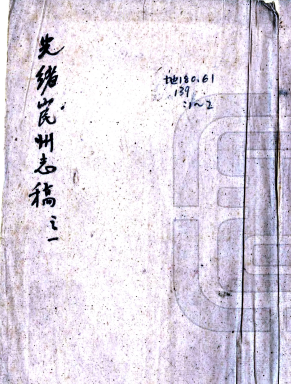 光緒岷州志稿之一
地180.61
139
:1~2